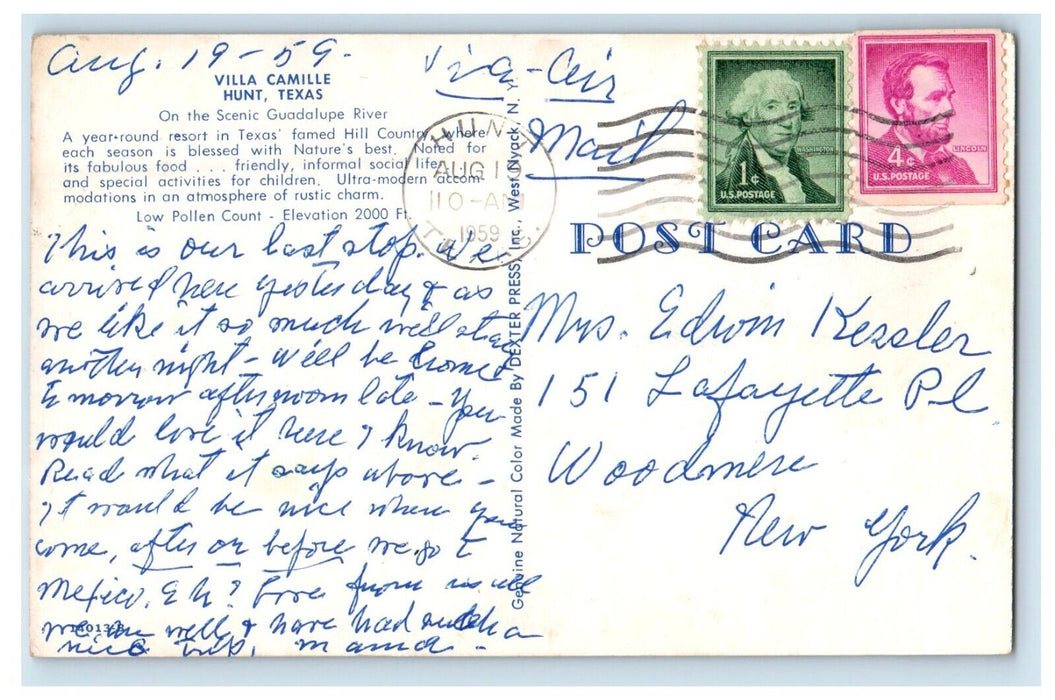 Aug. 19-59.
VILLA CAMILLE
HUNT, TEXAS
On the Scenic Guadalupe River
A year-round resort in Texas' famed Hill Country, where
each season is blessed with Nature's best. Noted for
its fabulous food . . . friendly, informal social life
and special activities for children. Ultra-modern accom-
modations in an atmosphere of rustic charm.
Low Pollen Count - Elevation 2000 Ft.
This is our last stop. We
arrived here yesterday & as
we like it so much we'll stay
another night - We'll be home
tomorrow afternoon late - You
would love it here I know.
Read what it says above -
It would be nice when you
come, after or before we go to
Mexico. Eh? Love from us all
we are well & have had such a
nice trip. Mama -
14013-B
Genuine Natural Color Made By DEXTER PRESS, Inc., West Nyack, N. Y.
Via-Air
Mail
HUNT
AUG 1
10-AM
1959
TEX.
WASHINGTON
1¢
U.S. POSTAGE
LINCOLN
4¢
U.S. POSTAGE
POST CARD
Mrs. Edwin Kessler
151 Lafayette Pl
Woodmere
New York.